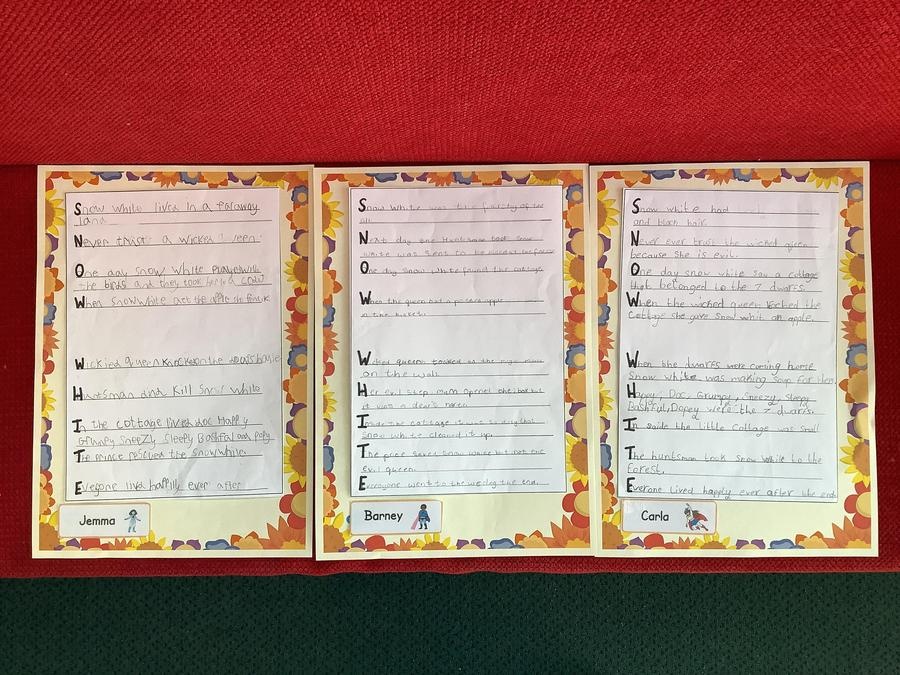 Snow white lived in a faraway
land
Never trust a wicked
One day snow white
the birds and they took her to a
When snow white the apple
Wickied queen knocked on the
Huntsman did Kill Snow white
In the cottage lived doc Happy
Grumpy Sneezy, Sleepy Bashful and
The prince rescued the Snow white.
Everyone live happily ever after
Jemma
Snow White was the of the
all
Next day the Huntsman took Snow
white was sent to the
One day Snow white found the cottage.
When the queen had a poison apple
in the
Wicked queen looked at the
on the wall
Her evil step mum opned the box but
it was a deer's
Inside the cottage it was so
Snow white cleaned it up.
The prince saved Snow white but not the
evil queen.
Everyone went to the the end.
Barney
Snow white had
and black hair.
Never ever trust the wicked queen
because she is evil.
One day snow white saw a cottage
that belonged to the 7 dwarfs.
When the wicked queen the
Cottage she gave Snow whit an apple.
When the dwarfs were coming home
Snow white was making soup for them.
Happy, Doc, Grumpy, Sneezy, Sleepy
Bashful, Dopey were the 7 dwarfs.
In saide the little Cottage was small
The huntsman took Snow white to the
forest.
Everone Lived happly ever after the end
Carla